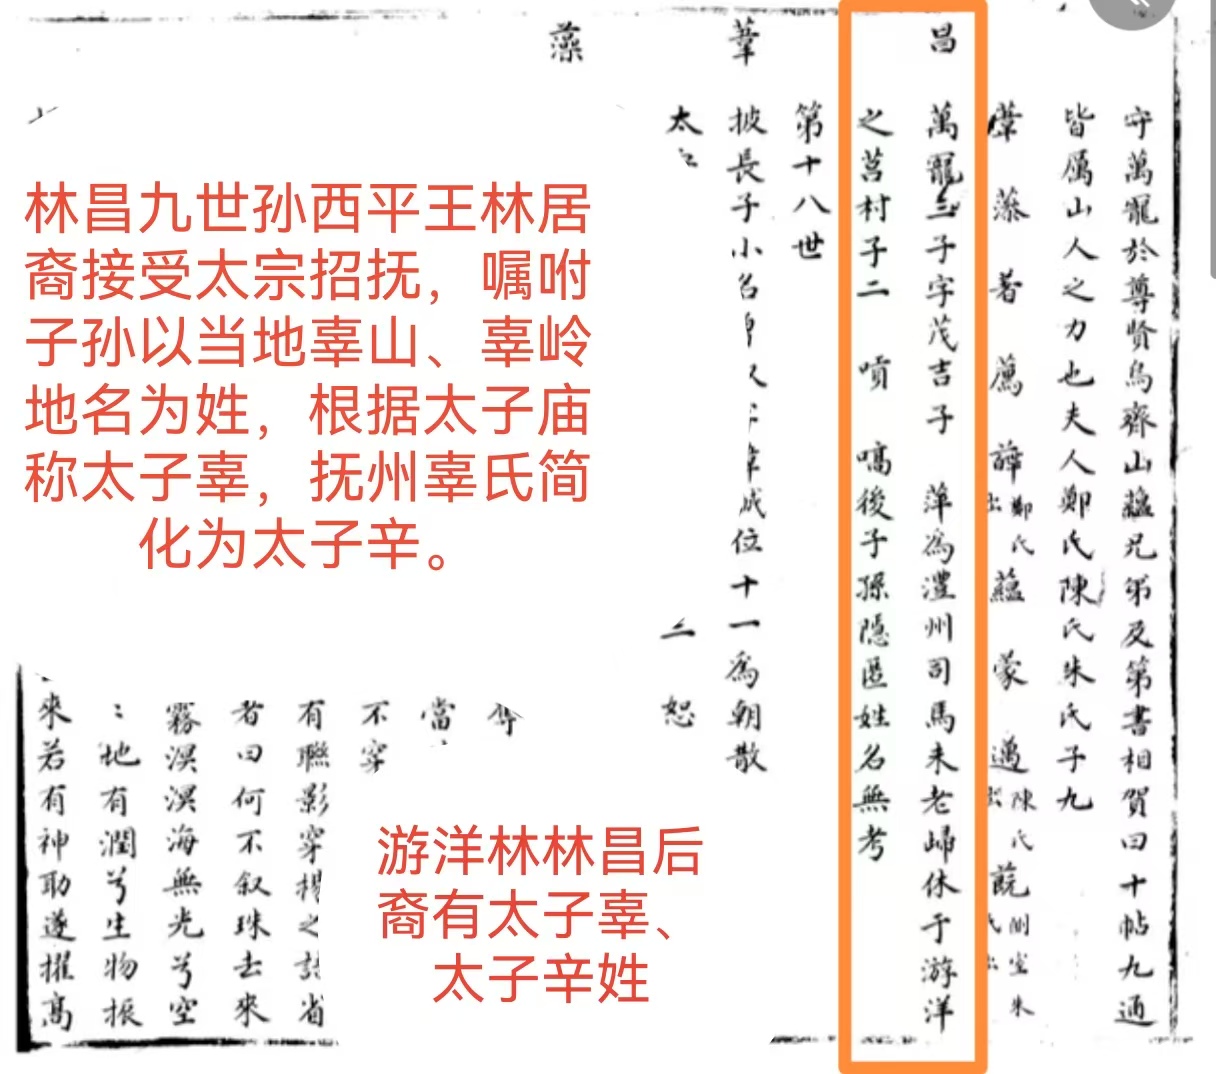 守萬寵於尊賢烏齊山蘊兄弟及第書相賀曰十帖九通
皆屬山人之力也夫人鄭氏陳氏朱氏子九
葦 藻 著 薦 蘀 鄭氏出 蘊 蒙 邁 陳氏出 蕘 側室朱氏出
昌
萬寵三子字茂吉子 萍為澧州司馬未老歸休于游洋
之莒村子二 噴 嗃後子孫隱匿姓名無考
第十八世
葦
披長子小名
葦成位十一為朝散
太
二 恕
藻
林昌九世孙西平王林居
裔接受太宗招抚，嘱咐
子孙以当地辜山、辜岭
地名为姓，根据太子庙
称太子辜，抚州辜氏简
化为太子辛。
當
不穿
有聯影穿
者曰何不叙珠去來
霧溟溟海無光兮空
地有潤兮生物振
來若有神助遂擢高
游洋林林昌后
裔有太子辜、
太子辛姓